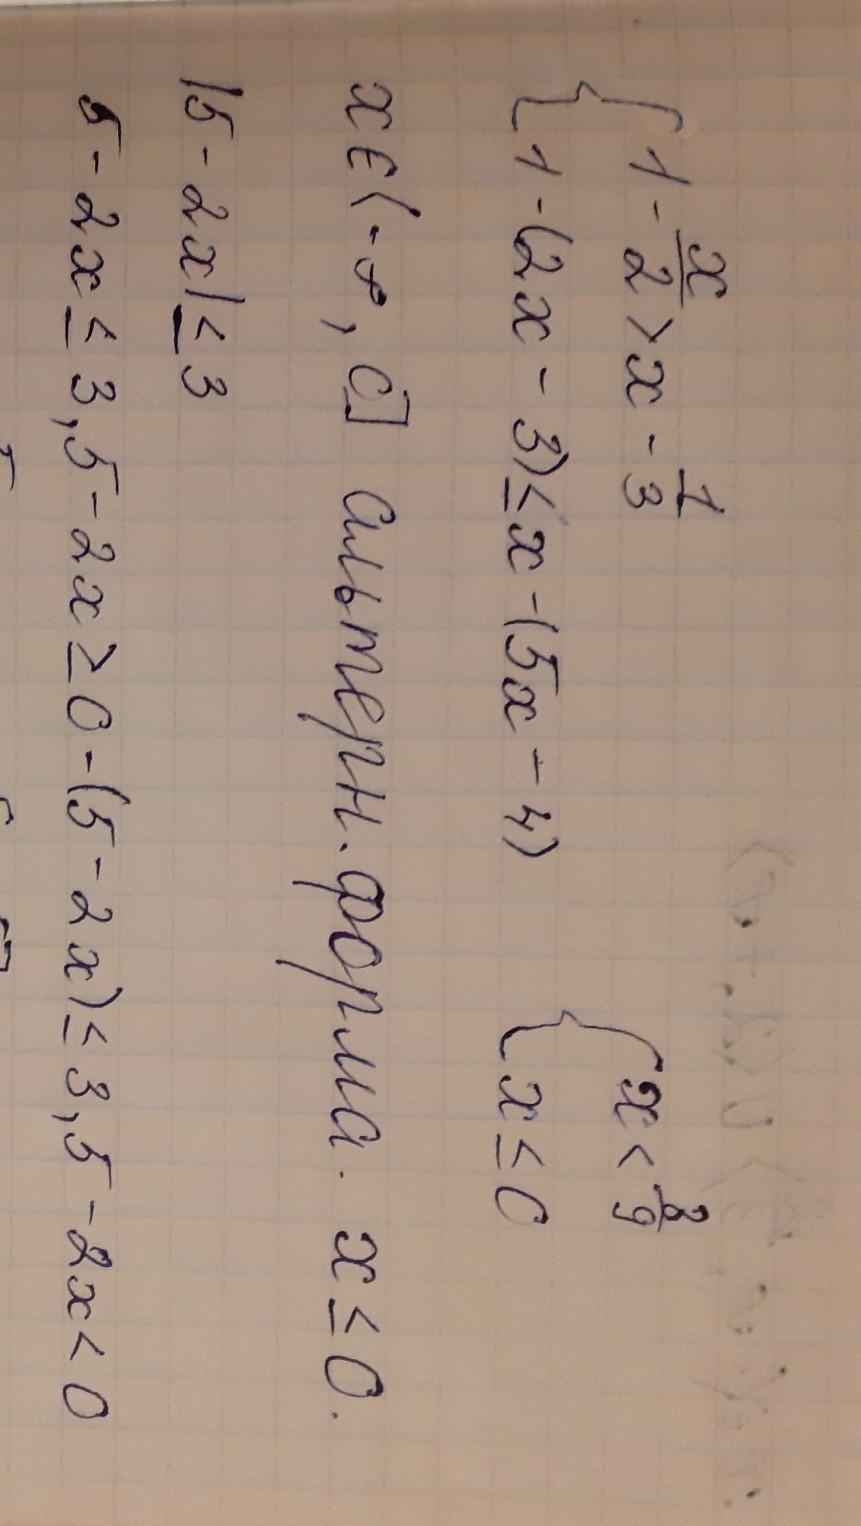 { 1 - x/2 > x - 1/3 { x < 8/9
{ 1 - (2x - 3) ≤ x - (5x - 4) { x ≤ 0
x ∈ (-∞, 0] альтерн. форма. x ≤ 0.
|5 - 2x| ≤ 3
5 - 2x ≤ 3, 5 - 2x ≥ 0 - (5 - 2x) ≤ 3, 5 - 2x < 0